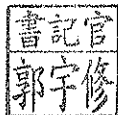 書記官
郭宇修